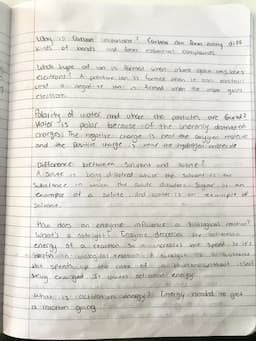 Why is Carbon important? Carbon can form many diff
kinds of bonds and form essential compounds.
What type of ion is formed when atoms gain and loses
electrons? A positive ion is formed when it loses electrons
and a negative ion is formed when the atom gains
electron.
Polarity of water and where the particles are found?
Water is polar because of the unevenly distributed
charges. The negative charge is near the oxygen molecule
and the positive charge is near the hydrogen molecule
Difference between Solvent and solute?
A solute is being dissolved while the solvent is the
substance in which the solute dissolves. Sugar is an
example of a solute and water is an example of
solvent.
How does an enzyme influence a biological reaction?
What's a catalyst? Enzyme decreases the activation
energy of a reaction so it increases the speed so it's
biological reaction. A catalyst is a substance
that speeds up the rate of a reaction without itself
being changed. It lowers activation energy
What is activation energy? Energy needed to get
a reaction going